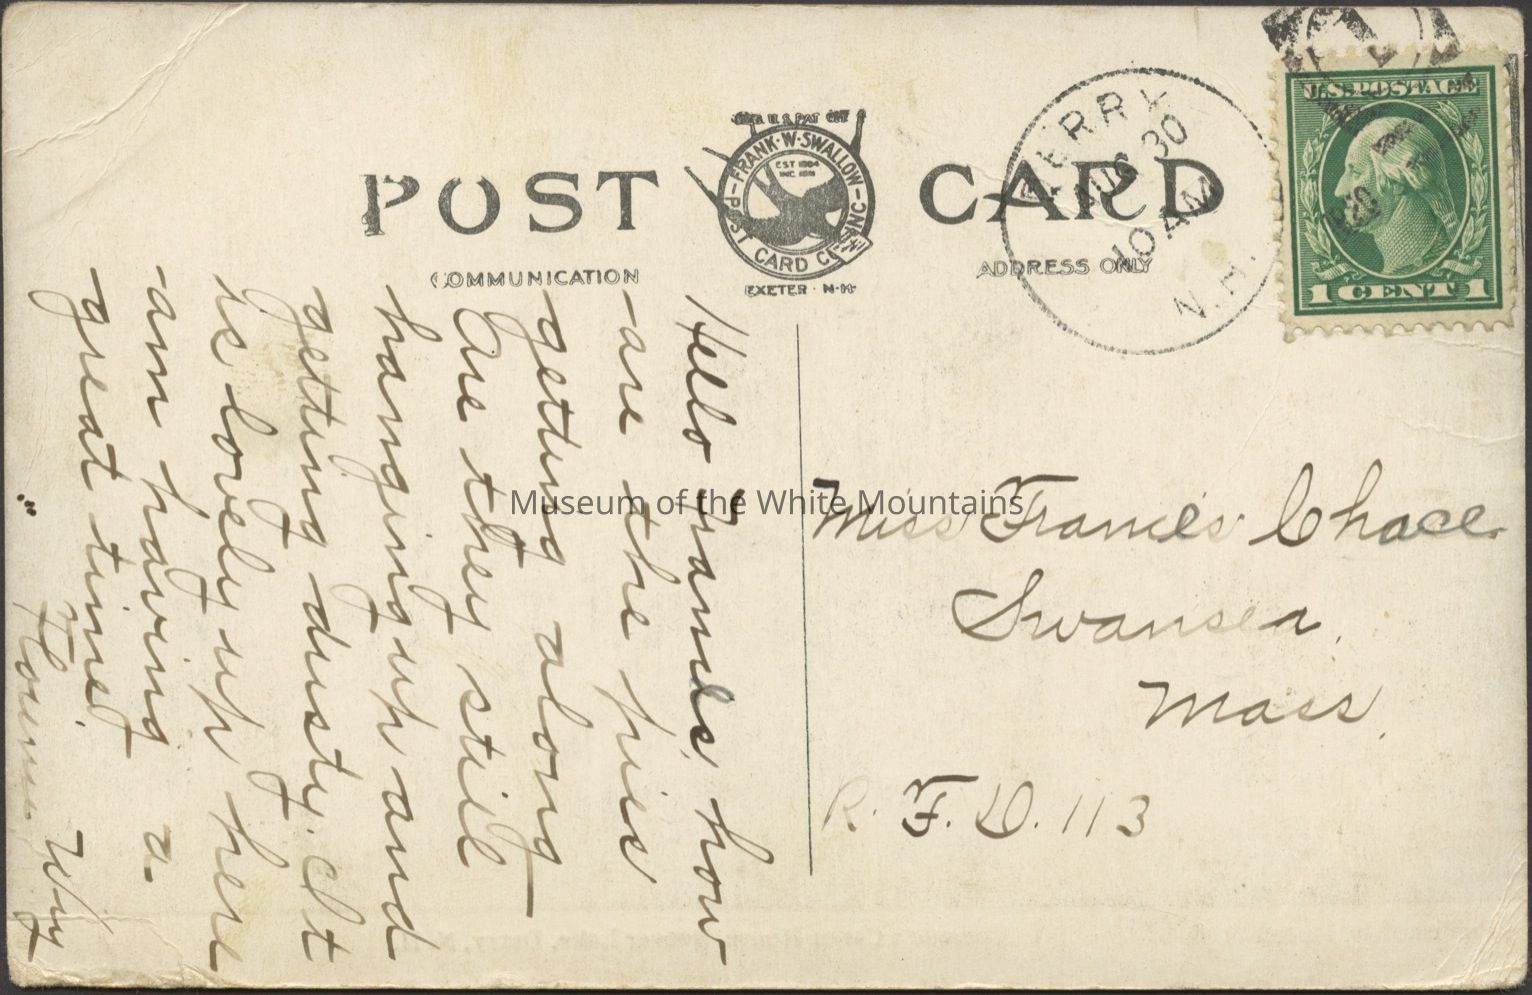 POST CARD
REG. U.S. PAT. OFF.
FRANK·W·SWALLOW
POST CARD CO. INC.
EST 1904
INC. 1911
EXETER · N·H·
COMMUNICATION
ADDRESS ONLY
DERRY
AUG 30
10 AM
N.H.
U.S. POSTAGE
1 CENT 1
Hello Frances, how
are the pies
getting along
Are they still
hanging up and
getting dusty. It
is lovely up here
am having a
great time
Miss Frances Chace
Swansea,
Mass.
R.F.D. 113
Museum of the White Mountains